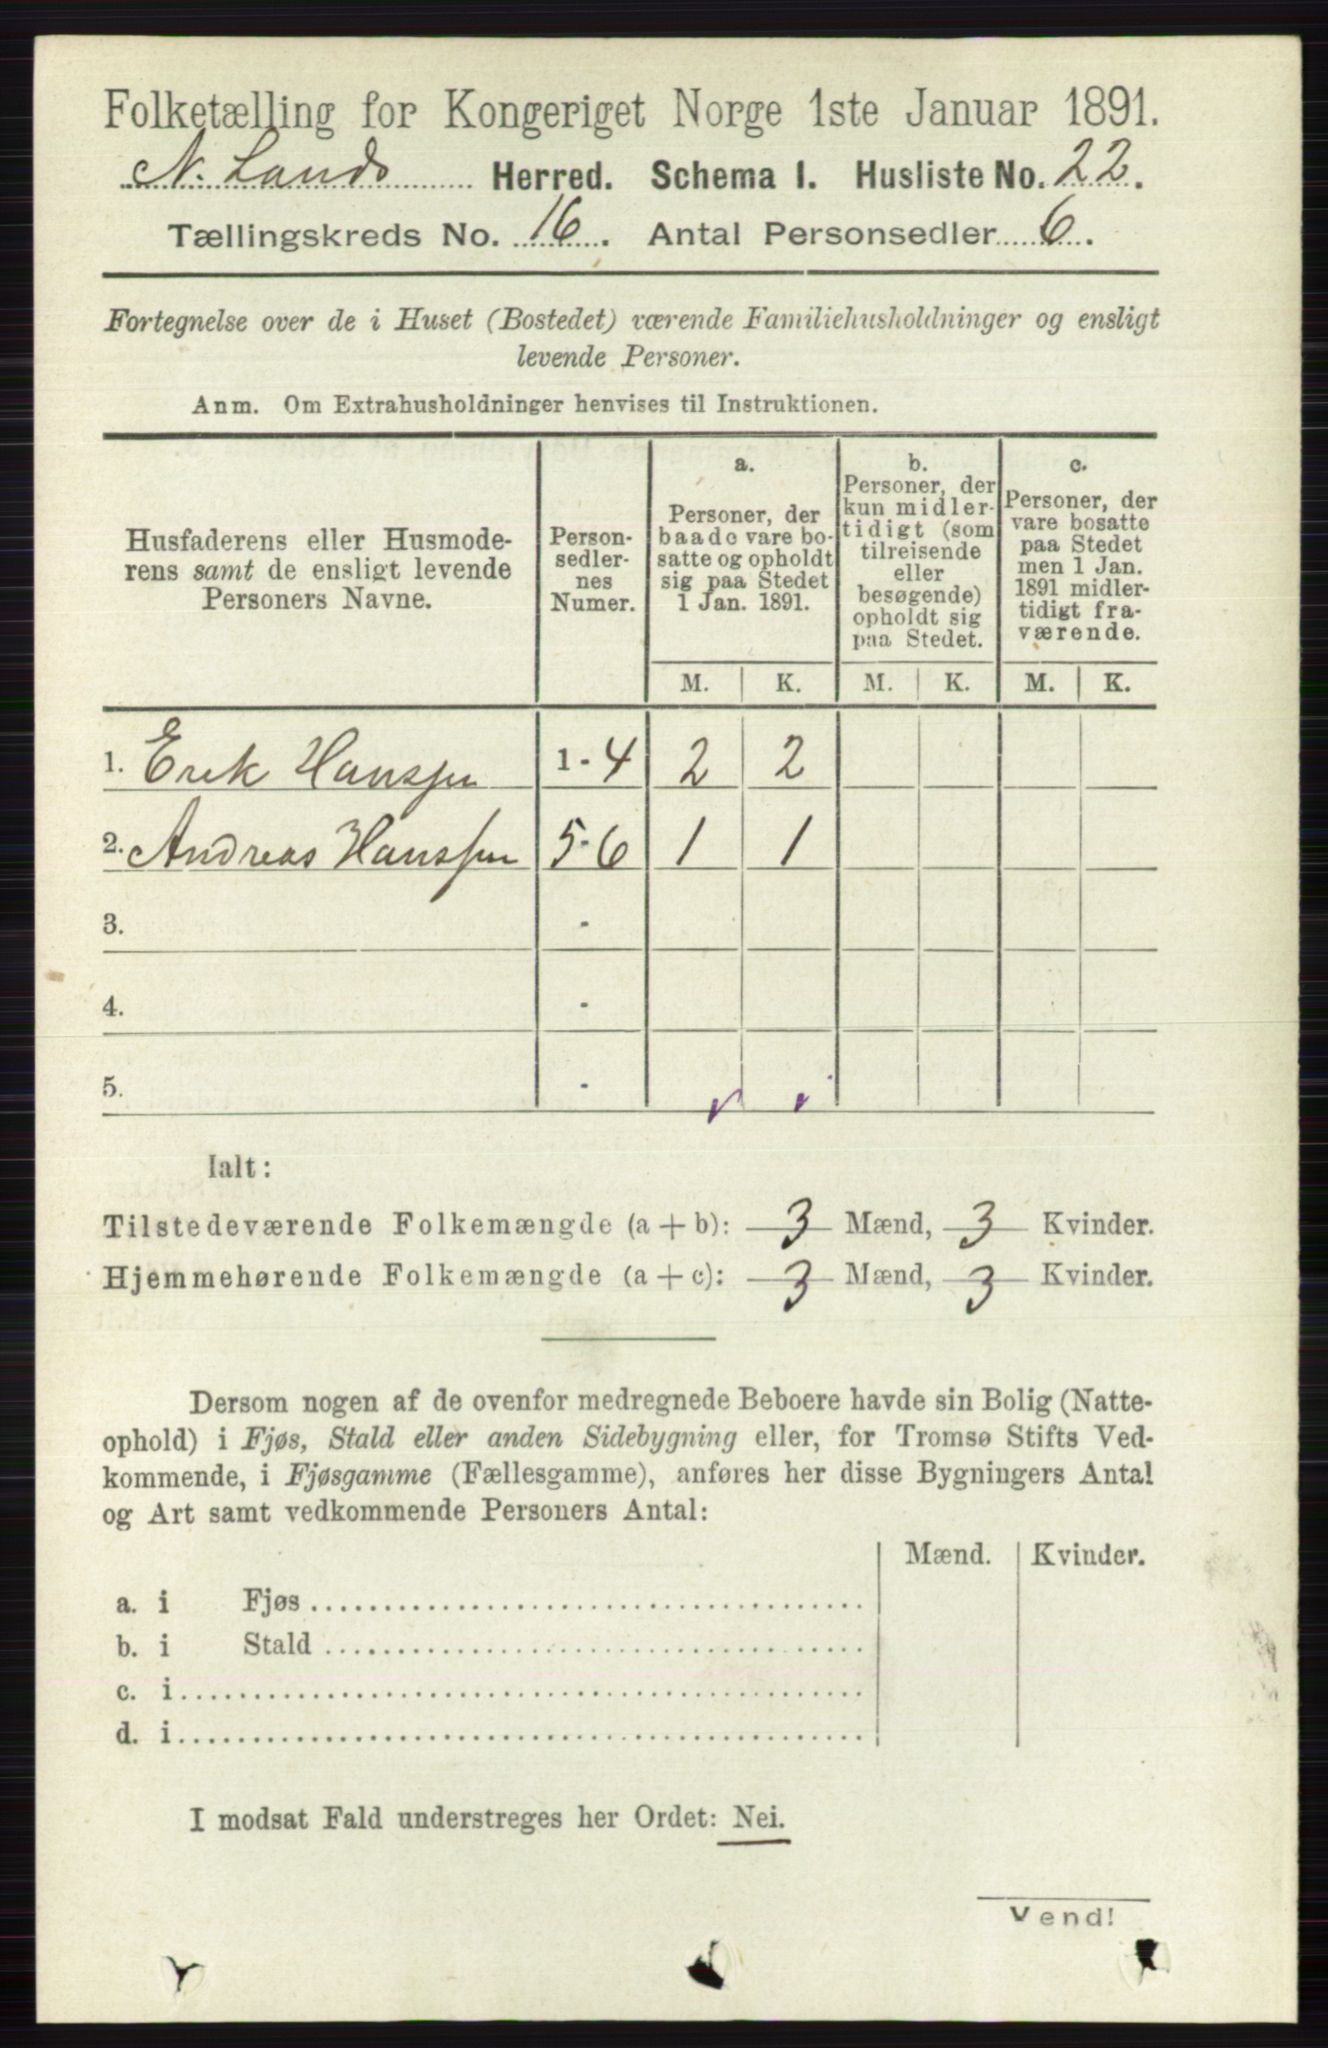 Folketælling for Kongeriget Norge 1ste Januar 1891.
N. Lands Herred. Schema I. Husliste No. 22.
Tællingskreds No. 16. Antal Personsedler 6.
Fortegnelse over de i Huset (Bostedet) værende Familiehusholdninger og ensligt
levende Personer.
Anm. Om Extrahusholdninger henvises til Instruktionen.
Husfaderens eller Husmode-
rens samt de ensligt levende
Personers Navne.
Person-
sedler-
nes
Numer.
a.
Personer, der
baade vare bo-
satte og opholdt
sig paa Stedet
1 Jan. 1891.
b.
Personer, der
kun midler-
tidigt (som
tilreisende
eller
besøgende)
opholdt sig
paa Stedet.
c.
Personer, der
vare bosatte
paa Stedet
men 1 Jan.
1891 midler-
tidigt fra-
værende.
M. K. M. K. M. K.
1. Erik Hanssen 1-4 2 2
2. Andreas Hanssen 5-6 1 1
3. -
4. -
5. -
Ialt:
Tilstedeværende Folkemængde (a + b): 3 Mænd, 3 Kvinder.
Hjemmehørende Folkemængde (a + c): 3 Mænd, 3 Kvinder.
Dersom nogen af de ovenfor medregnede Beboere havde sin Bolig (Natte-
ophold) i Fjøs, Stald eller anden Sidebygning eller, for Tromsø Stifts Ved-
kommende, i Fjøsgamme (Fællesgamme), anføres her disse Bygningers Antal
og Art samt vedkommende Personers Antal:
Mænd. Kvinder.
a. i Fjøs
b. i Stald
c. i
d. i
I modsat Fald understreges her Ordet: Nei.
Vend!